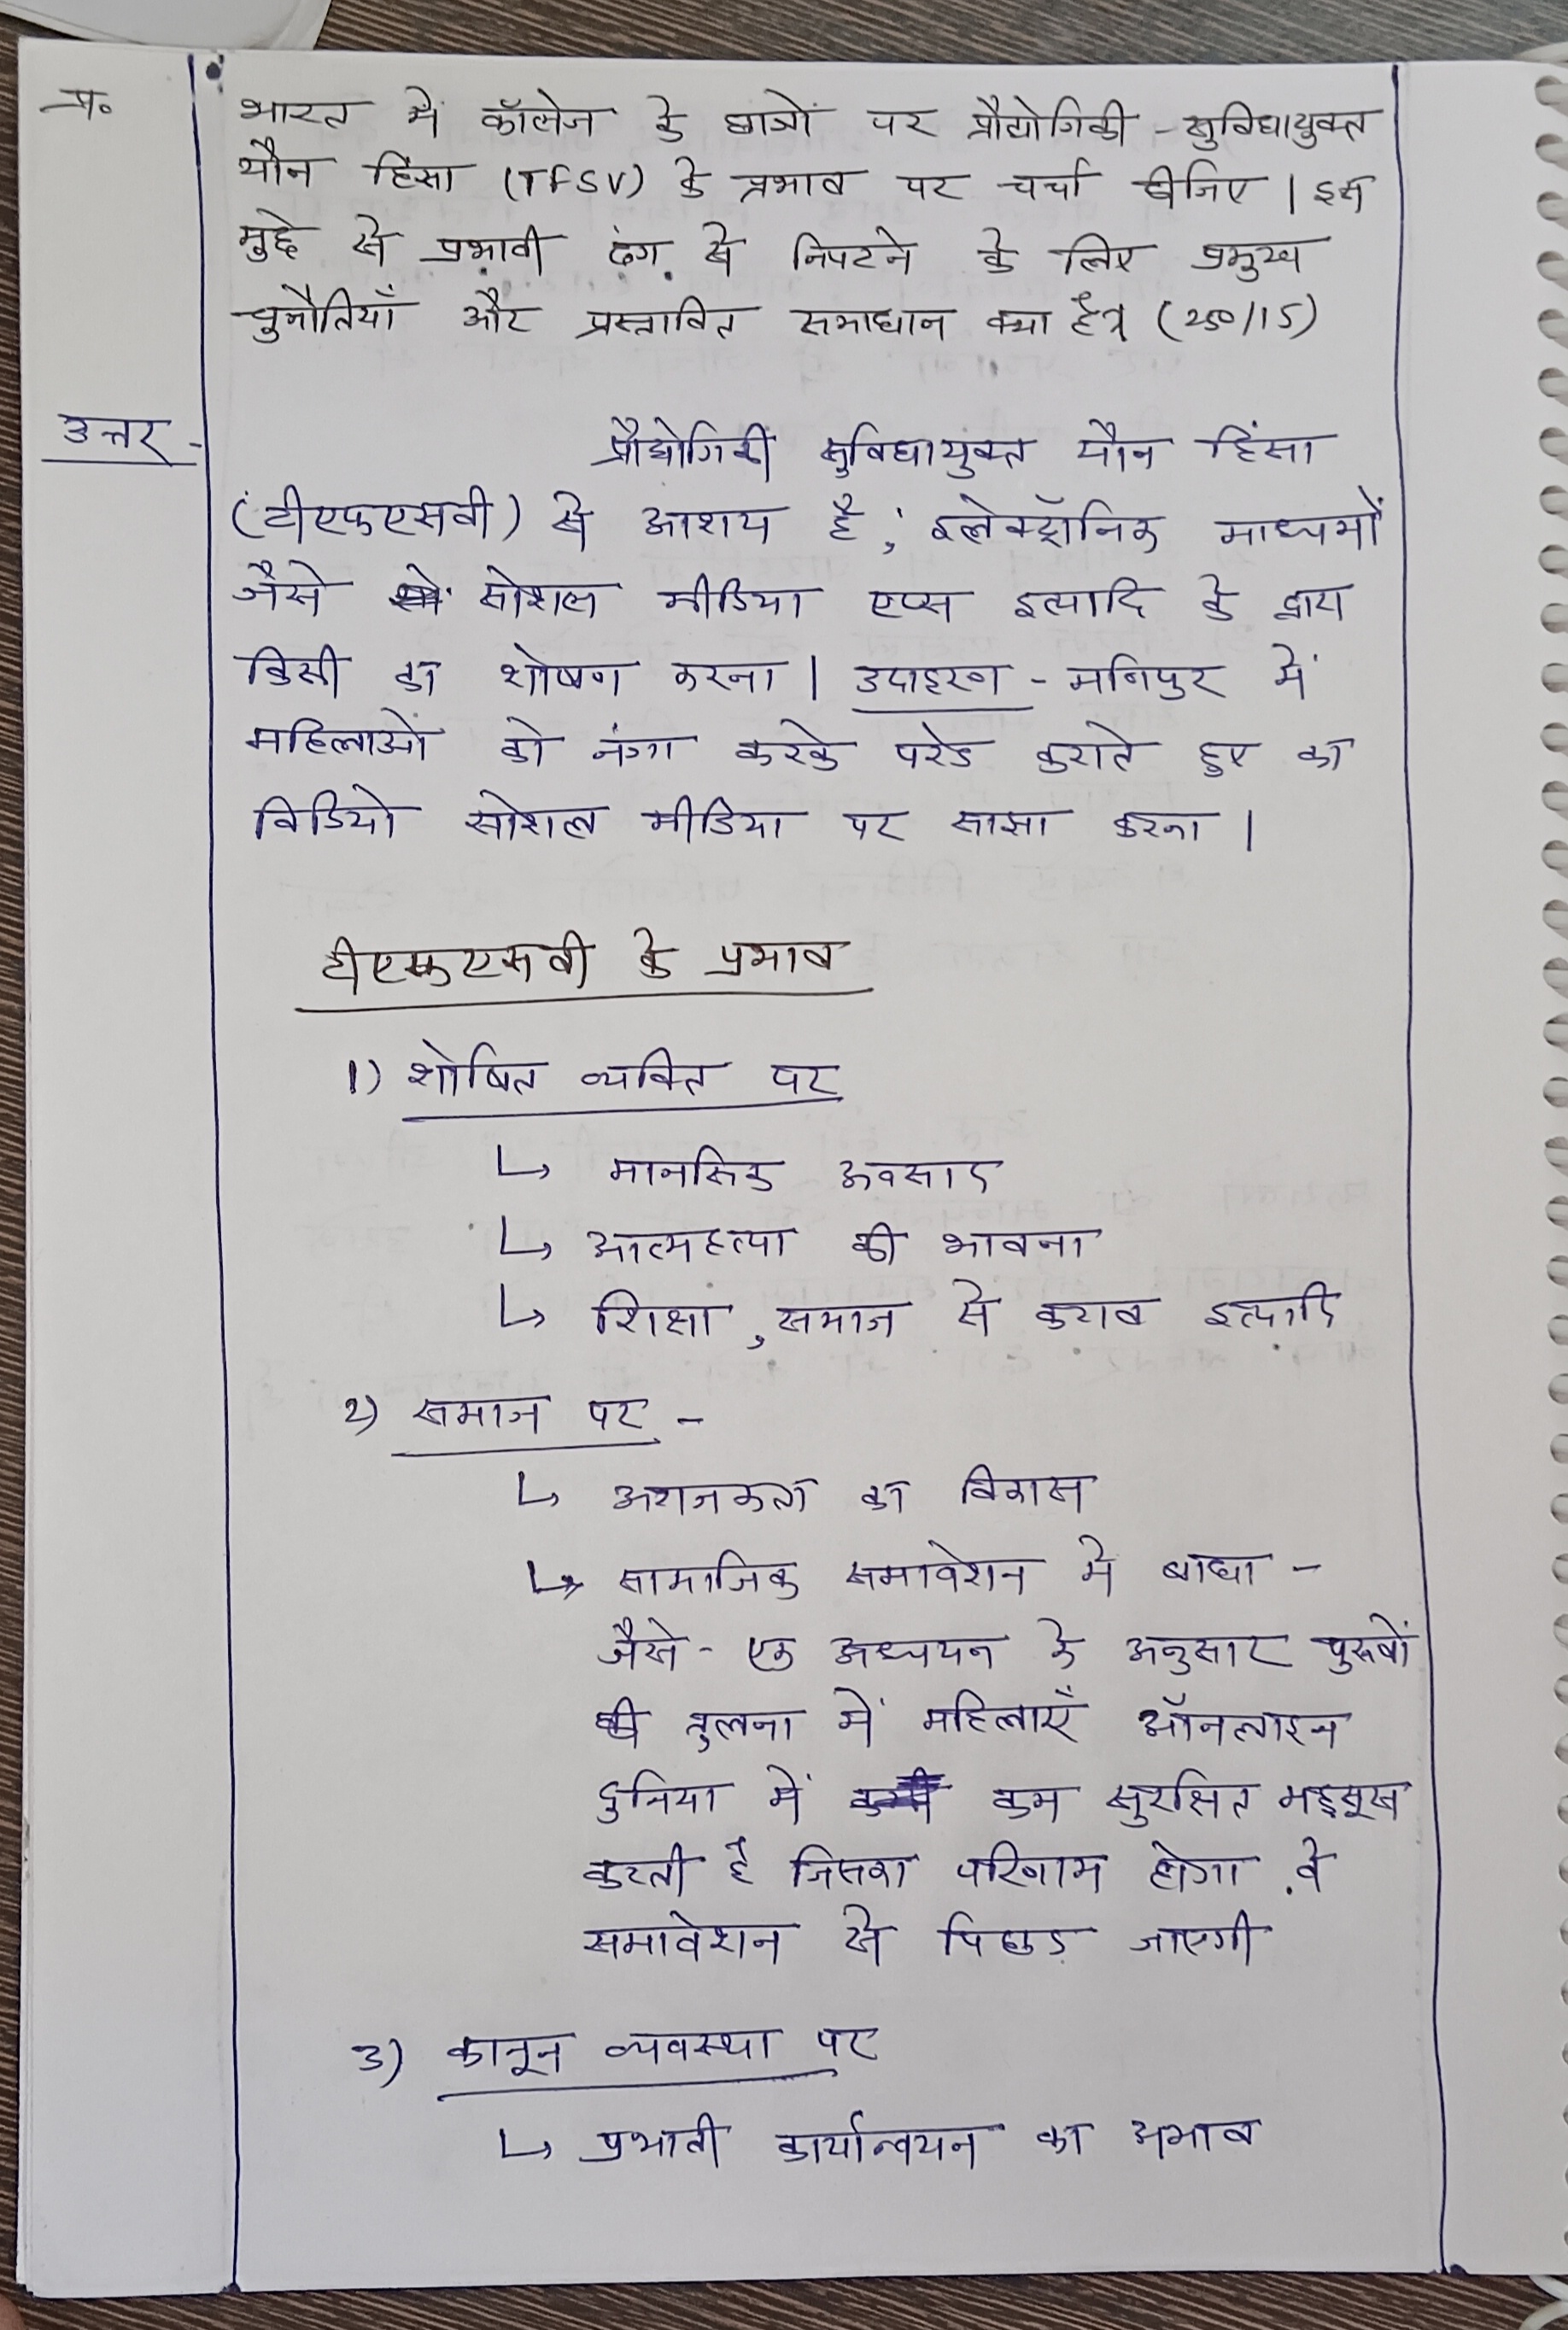 प्र०
भारत में कॉलेज के छात्रों पर प्रौद्योगिकी - सुविधायुक्त
यौन हिंसा (TFSV) के प्रभाव पर चर्चा कीजिए। इस
मुद्दे से प्रभावी ढंग से निपटने के लिए प्रमुख
चुनौतियाँ और प्रस्तावित समाधान क्या है? (250/15)
उत्तर -
प्रौद्योगिकी सुविधायुक्त यौन हिंसा
(टीएफएसवी) से आशय है; इलेक्ट्रॉनिक माध्यमों
जैसे सोशल मीडिया एप्स इत्यादि के द्वारा
किसी का शोषण करना। उदाहरण - मणिपुर में
महिलाओं को नंगा करके परेड कराते हुए का
विडियो सोशल मीडिया पर साझा करना।
टीएफएसवी के प्रभाव
1) शोषित व्यक्ति पर
↳ मानसिक अवसाद
↳ आत्महत्या की भावना
↳ शिक्षा, समाज से कटाव इत्यादि
2) समाज पर -
↳ अराजकता का विकास
↳ सामाजिक समावेशन में बाधा -
जैसे - एक अध्ययन के अनुसार पुरुषों
की तुलना में महिलाएँ ऑनलाइन
दुनिया में कम सुरक्षित महसूस
करती है जिसका परिणाम होगा वे
समावेशन से पिछड़ जाएगी
3) कानून व्यवस्था पर
↳ प्रभावी कार्यान्वयन का अभाव